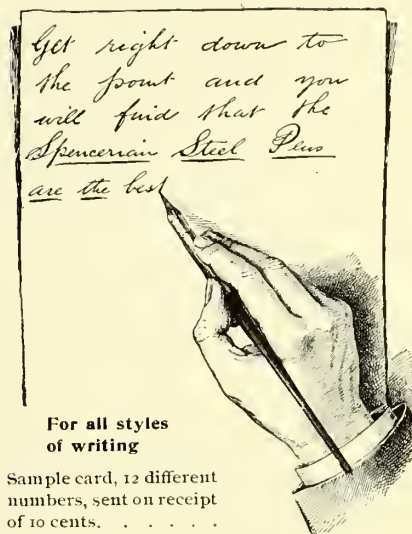 Get right down to
the point and you
will find that the
Spencerian Steel Pens
are the best
For all styles
of writing
Sample card, 12 different
numbers, sent on receipt
of 10 cents. . . . . .